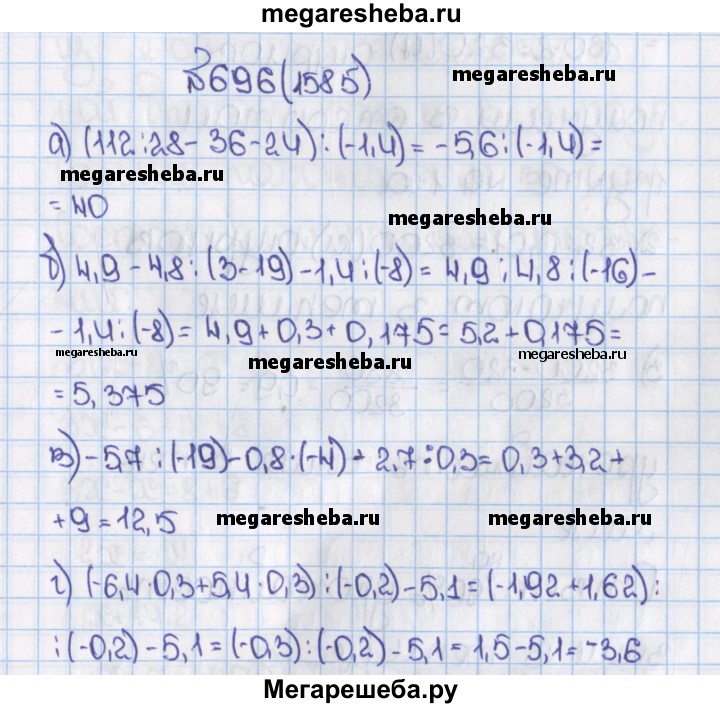 megaresheba.ru
№696(1585)
megaresheba.ru
а) (112:28-36-24):(-1,4)=-5,6:(-1,4)=
megaresheba.ru
=40
megaresheba.ru
б) 4,9-4,8:(3-19)-1,4:(-8)=4,9:4,8:(-16)-
-1,4:(-8)=4,9+0,3+0,175=5,2+0,175=
megaresheba.ru megaresheba.ru megaresheba.ru
=5,375
в) -5,7:(-19)-0,8·(-4)+2,7:0,3=0,3+3,2+
+9=12,5 megaresheba.ru megaresheba.ru
г) (-6,4·0,3+5,4·0,3):(-0,2)-5,1=(-1,92+1,62):
:(-0,2)-5,1=(-0,3):(-0,2)-5,1=1,5-5,1=-3,6
Мегарешеба.ру